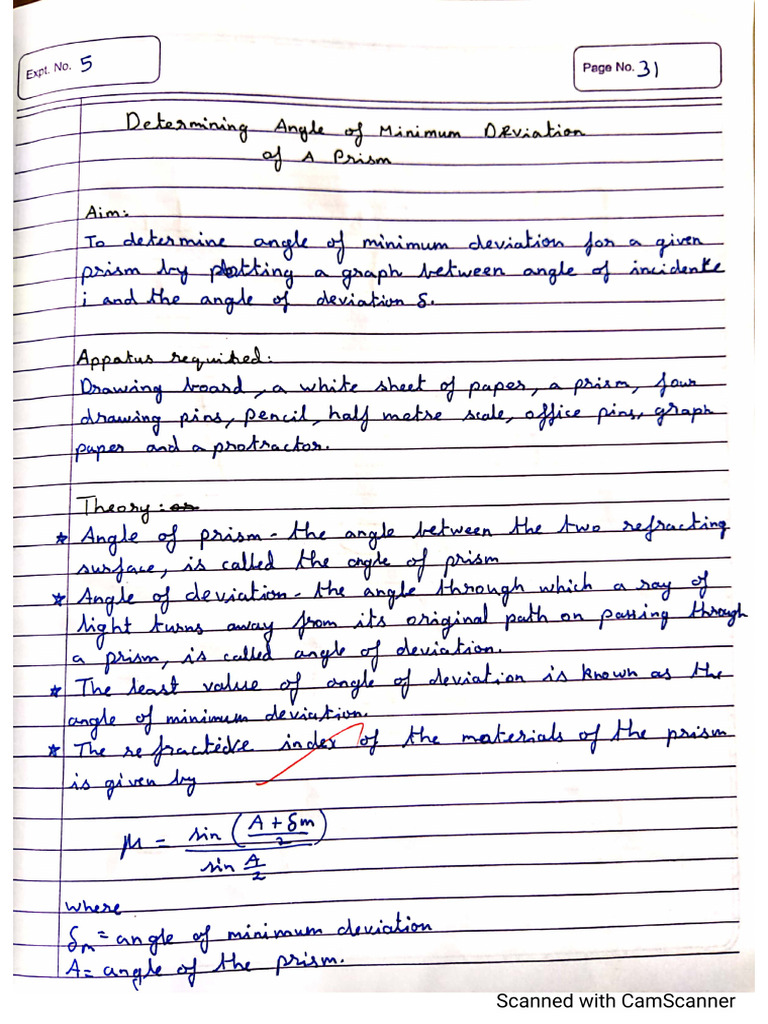 Expt. No. 5
Page No. 31
Determining Angle of Minimum Deviation
of A Prism
Aim:
To determine angle of minimum deviation for a given
prism by plotting a graph between angle of incidente
i and the angle of deviation δ.
Appatus required:
Drawing board, a white sheet of paper, a prism, four
drawing pins, pencil, half metre scale, office pins, graph
paper and a protractor.
Theory:
* Angle of prism - the angle between the two refracting
surface, is called the angle of prism
* Angle of deviation - the angle through which a ray of
light turns away from its original path on passing through
a prism, is called angle of deviation.
* The least value of angle of deviation is known as the
angle of minimum deviation.
* The index of the materials of the prism
is given by
μ = sin (A + δm / 2) / sin A/2
where
δm = angle of minimum deviation
A = angle of the prism.
Scanned with CamScanner